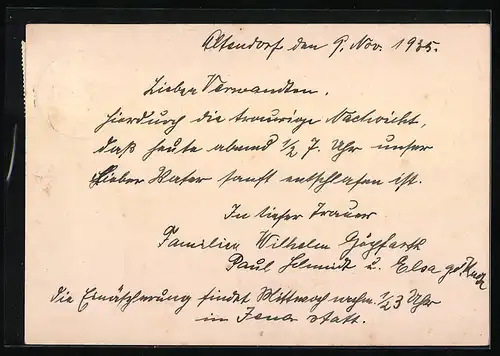 Altendorf den 9. Nov. 1935.
Lieber Verwandten.
Hierdurch die traurige Nachricht,
daß heute abend 1/2 7. Uhr unser
Lieber Vater sanft entschlafen ist.
In tiefer Trauer
Familien Wilhelm
Paul Schmidt u. Elsa
die Einäscherung findet Mittwoch nachm. 1/2 3 Uhr
in Jena statt.